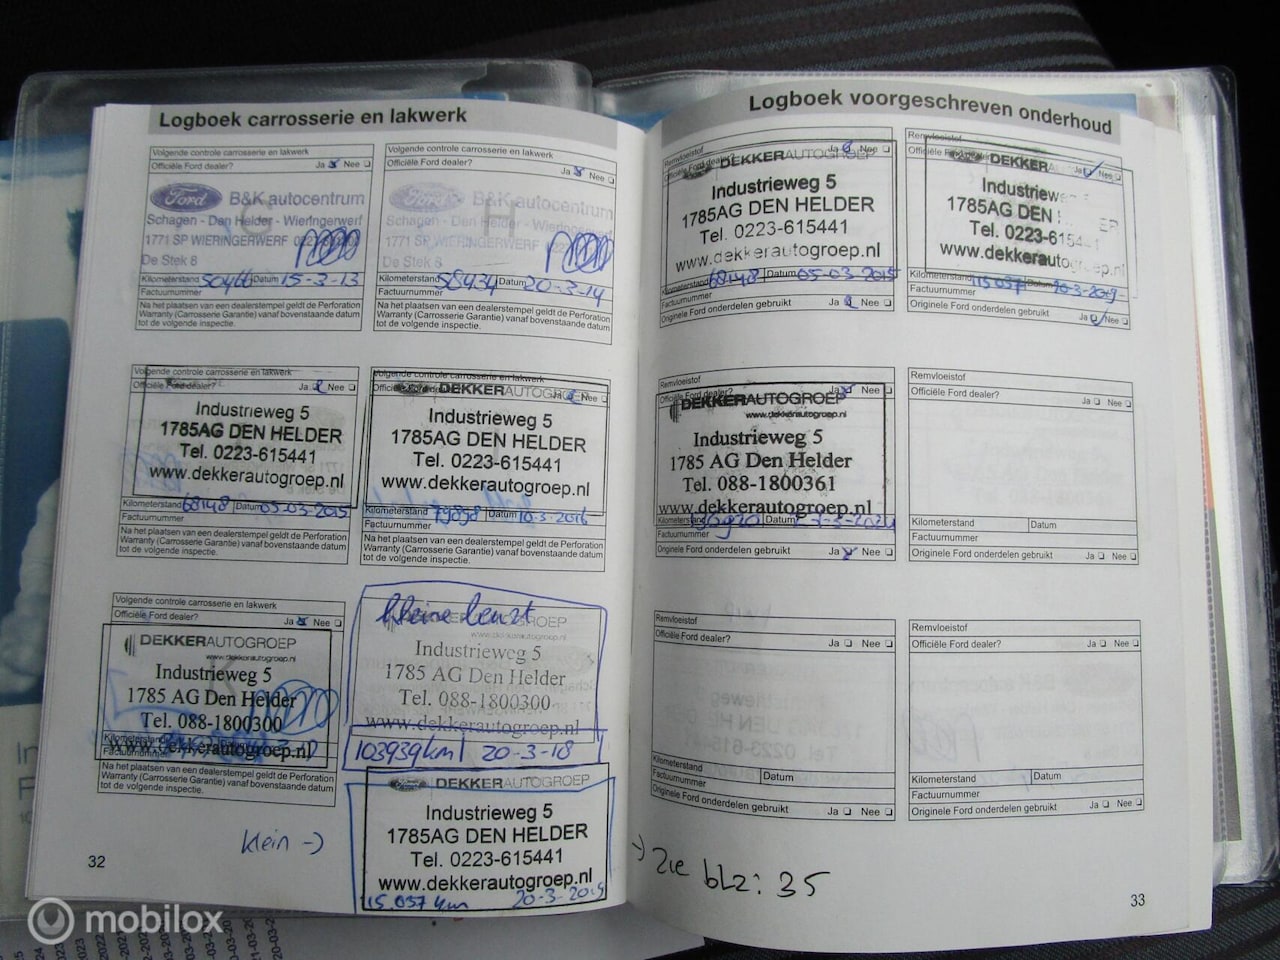 Logboek carrosserie en lakwerk
Volgende controle carrosserie en lakwerk
Officiële Ford dealer? Ja Nee
Ford B&K autocentrum
Schagen - Den Helder - Wieringerwerf
1771 SP WIERINGERWERF
De Stek 8
Kilometerstand 50466 Datum 15-3-13
Factuurnummer
Na het plaatsen van een dealerstempel geldt de Perforation
Warranty (Carrosserie Garantie) vanaf bovenstaande datum
tot de volgende inspectie.
Volgende controle carrosserie en lakwerk
Officiële Ford dealer? Ja Nee
Ford B&K autocentrum
Schagen - Den Helder - Wieringerwerf
1771 SP WIERINGERWERF
De Stek 8
Kilometerstand 58434 Datum 20-3-14
Factuurnummer
Na het plaatsen van een dealerstempel geldt de Perforation
Warranty (Carrosserie Garantie) vanaf bovenstaande datum
tot de volgende inspectie.
Officiële Ford dealer? Ja Nee
Industrieweg 5
1785AG DEN HELDER
Tel. 0223-615441
www.dekkerautogroep.nl
Kilometerstand 68148 Datum 05-03-2015
Factuurnummer
Na het plaatsen van een dealerstempel geldt de Perforation
Warranty (Carrosserie Garantie) vanaf bovenstaande datum
tot de volgende inspectie.
Volgende controle carrosserie en lakwerk
DEKKERAUTOGROEP
Ja Nee
Industrieweg 5
1785AG DEN HELDER
Tel. 0223-615441
www.dekkerautogroep.nl
Kilometerstand 79898 Datum 10-3-2016
Factuurnummer
Na het plaatsen van een dealerstempel geldt de Perforation
Warranty (Carrosserie Garantie) vanaf bovenstaande datum
tot de volgende inspectie.
Volgende controle carrosserie en lakwerk
Officiële Ford dealer? Ja Nee
DEKKERAUTOGROEP
www.dekkerautogroep.nl
Industrieweg 5
1785 AG Den Helder
Tel. 088-1800300
www.dekkerautogroep.nl
Factuurnummer
Na het plaatsen van een dealerstempel geldt de Perforation
Warranty (Carrosserie Garantie) vanaf bovenstaande datum
tot de volgende inspectie.
kleine beurt
DEKKERAUTOGROEP
www.dekkerautogroep.nl
Industrieweg 5
1785 AG Den Helder
Tel. 088-1800300
www.dekkerautogroep.nl
103939km 20-3-18
DEKKERAUTOGROEP
Industrieweg 5
1785AG DEN HELDER
Tel. 0223-615441
www.dekkerautogroep.nl
115.037 km 20-3-2019
klein ->
32
Logboek voorgeschreven onderhoud
Remvloeistof
Officiële Ford dealer? Ja Nee
DEKKERAUTOGROEP
Industrieweg 5
1785AG DEN HELDER
Tel. 0223-615441
www.dekkerautogroep.nl
Kilometerstand 68148 Datum 05-03-2015
Factuurnummer
Originele Ford onderdelen gebruikt Ja Nee
Remvloeistof
DEKKER
Ja Nee
1785AG DEN HELDER
Tel. 0223-615441
www.dekkerautogroep.nl
115037 Datum 20-3-2019
Factuurnummer
Originele Ford onderdelen gebruikt Ja Nee
Remvloeistof
Officiële Ford dealer? Ja Nee
DEKKERAUTOGROEP
www.dekkerautogroep.nl
Industrieweg 5
1785 AG Den Helder
Tel. 088-1800361
www.dekkerautogroep.nl
Kilometerstand Datum
Factuurnummer
Originele Ford onderdelen gebruikt Ja Nee
Remvloeistof
Officiële Ford dealer?
Ja Nee
Kilometerstand Datum
Factuurnummer
Originele Ford onderdelen gebruikt Ja Nee
Remvloeistof
Officiële Ford dealer?
Ja Nee
Kilometerstand
Factuurnummer Datum
Originele Ford onderdelen gebruikt Ja Nee
Remvloeistof
Officiële Ford dealer?
Ja Nee
Kilometerstand Datum
Factuurnummer
Originele Ford onderdelen gebruikt Ja Nee
-> Zie blz: 35
33
mobilox